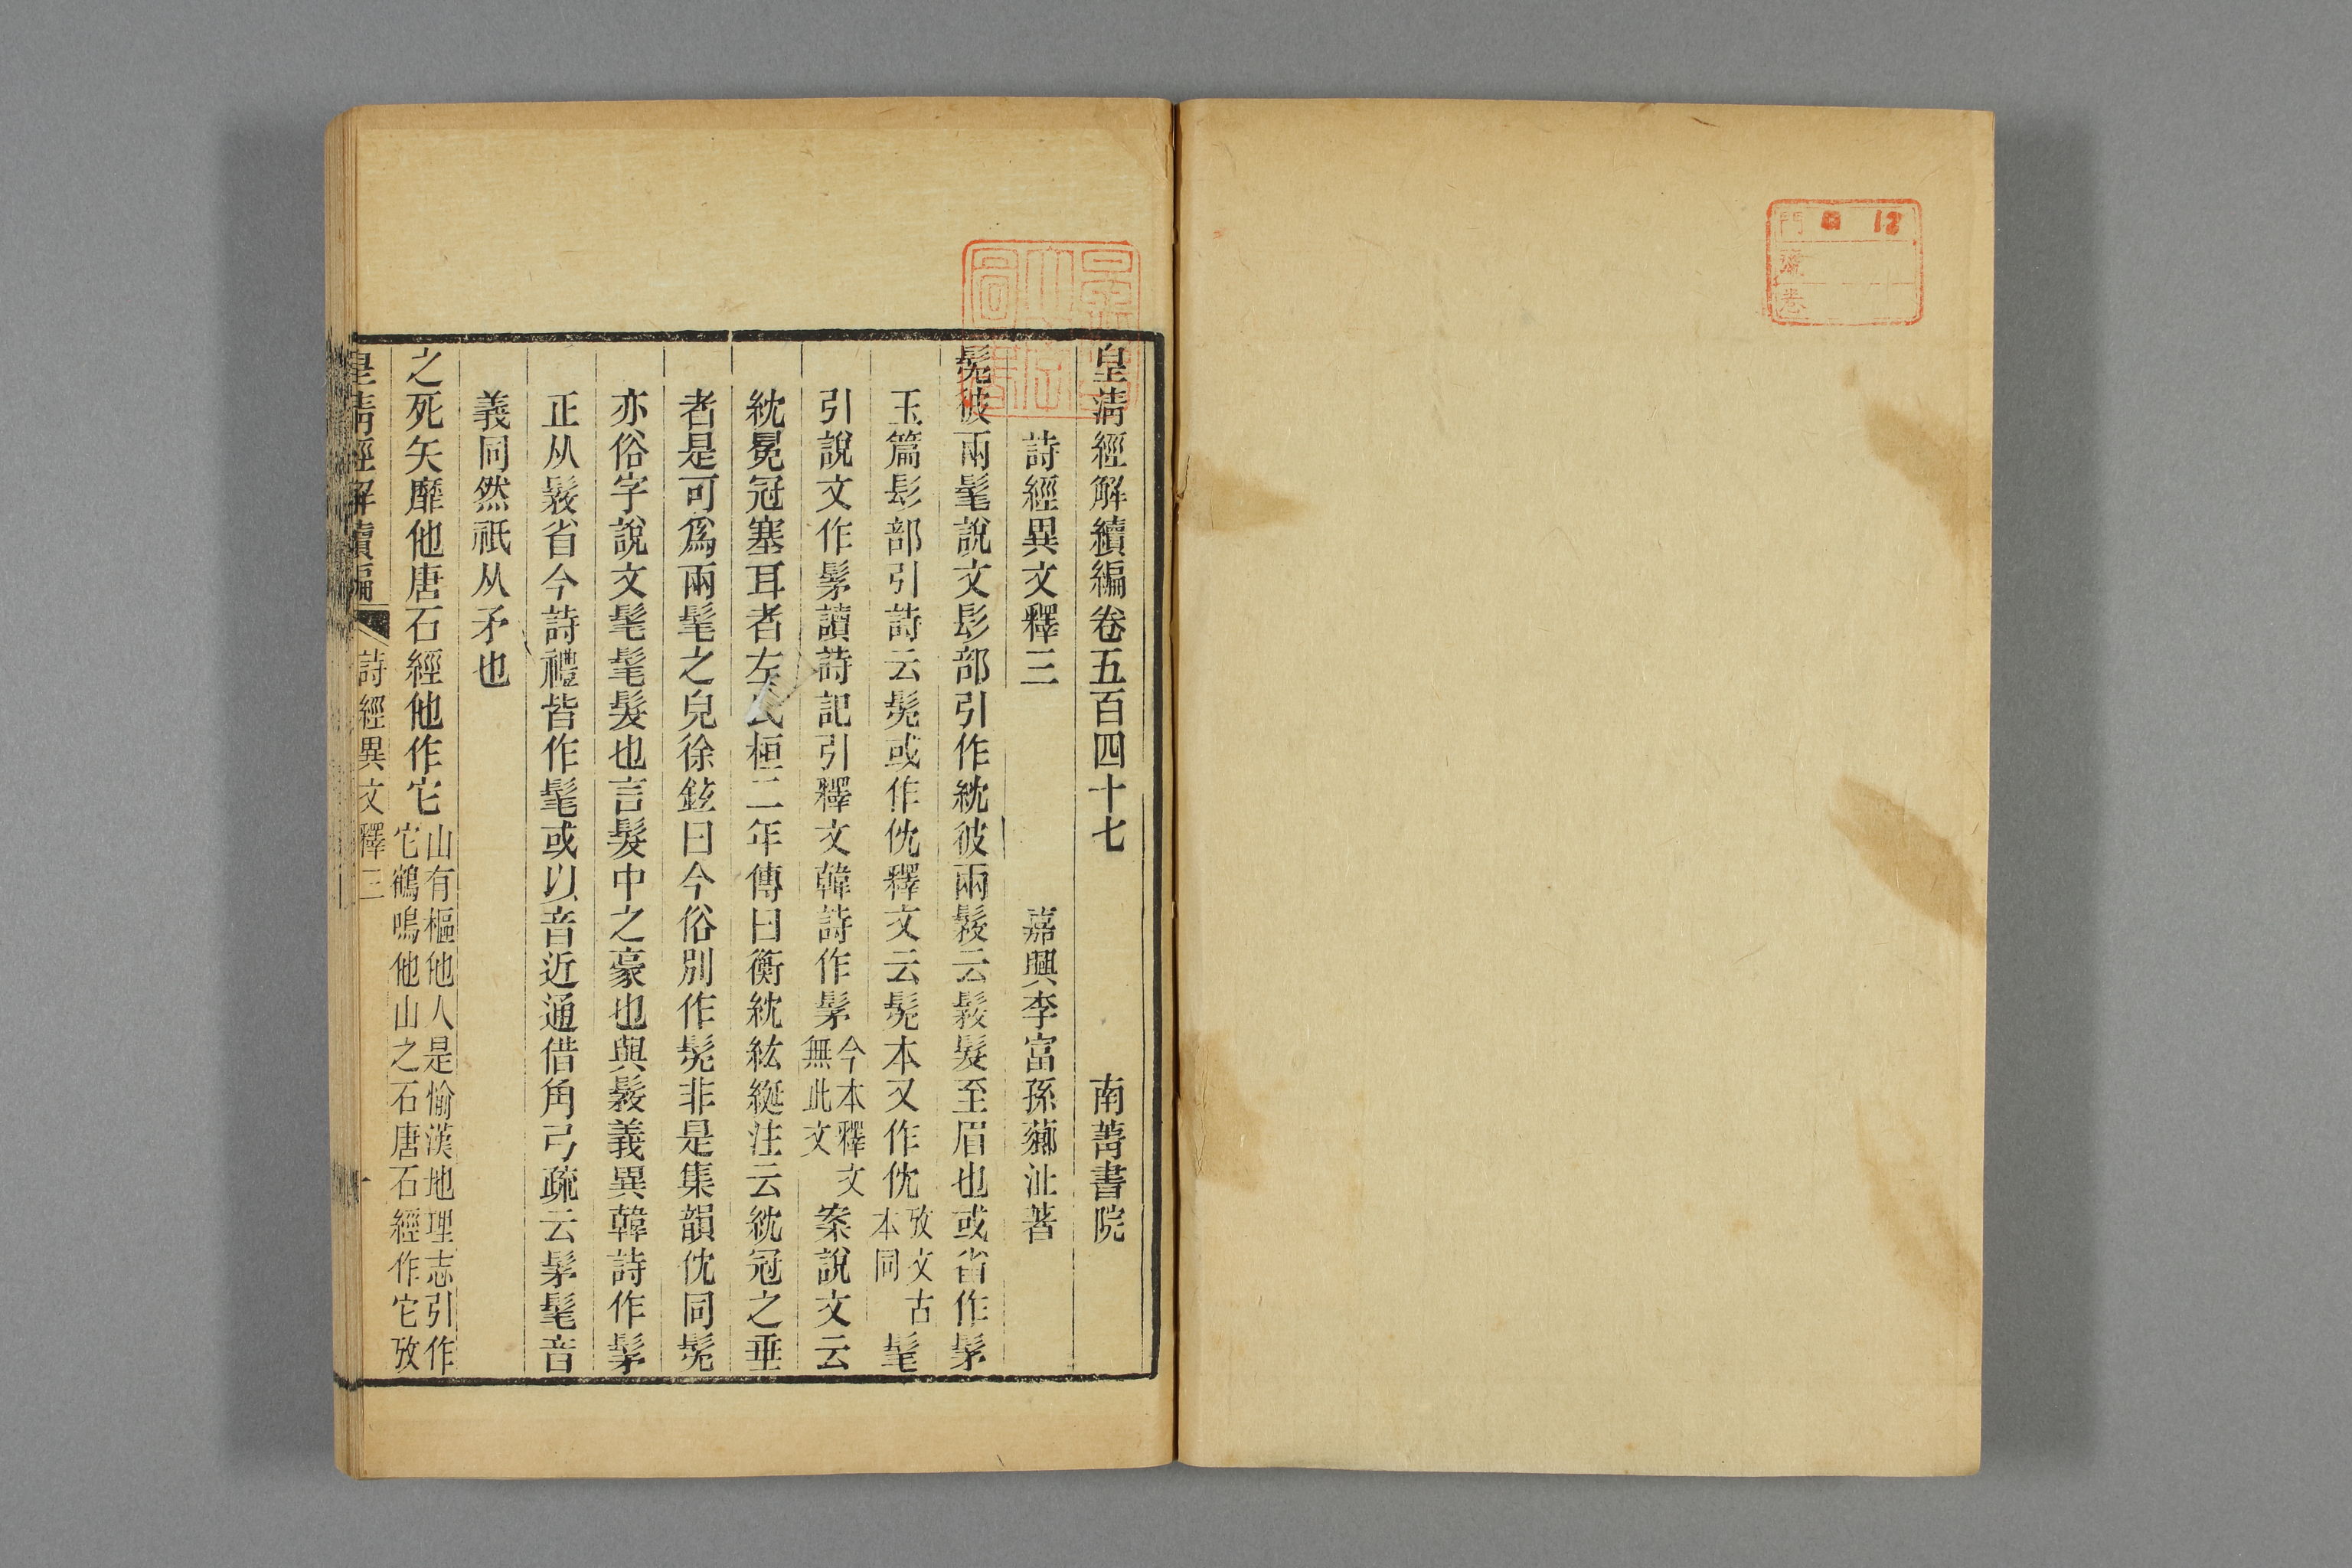 皇清經解續編卷五百四十七 南菁書院
詩經異文釋三 嘉興李富孫薌沚著
髧彼兩髦說文髟部引作紞彼兩髳云髳髮至眉也或省作髳
玉篇髟部引詩云髧或作㐲釋文云髧本又作㐲攷文古本同髦
引說文作髳讀詩記引釋文韓詩作髳今本釋文無此文案說文云
紞冕冠塞耳者左氏桓二年傳曰衡紞紘綖注云紞冠之垂
者是可爲兩髦之皃徐鉉曰今俗別作髧非是集韻㐲同髧
亦俗字說文髦髦髮也言髮中之豪也與髳義異韓詩作髳
正从髳省今詩禮皆作髦或以音近通借角弓疏云髳髦音
義同然祇从矛也
之死矢靡他唐石經他作它山有樞他人是愉漢地理志引作它鶴鳴他山之石唐石經作它攷
皇清經解續編 詩經異文釋三
門 12
號
卷